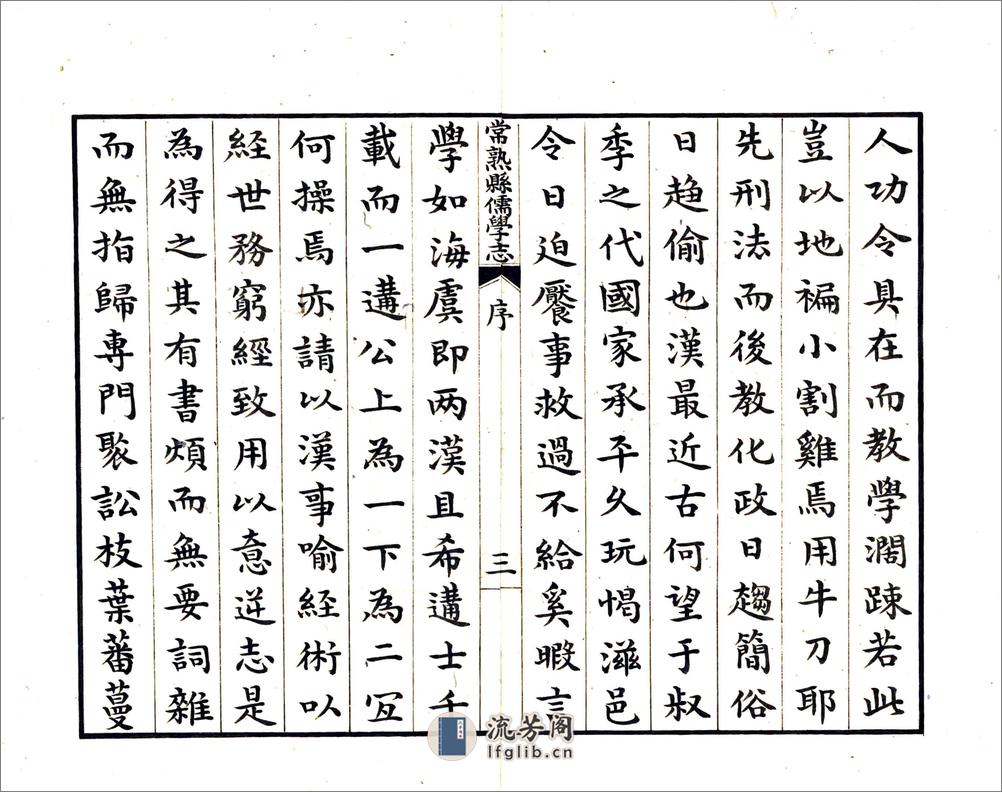 人功令具在而教學濶踈若此
豈以地褊小割雞焉用牛刀耶
先刑法而後教化政日趨簡俗
日趋偷也漢最近古何望于叔
季之代國家承平久玩愒滋邑
令日迫饜事救過不給奚暇言
常熟縣儒學志 序 三
學如海虞即两漢且希遘士千
載而一遘公上為一下為二冝
何操焉亦請以漢事喻經術以
經世務窮經致用以意逆志是
為得之其有書煩而無要詞雜
而無指歸專門聚訟枝葉蕃蔓
流芳阁
lfglib.cn